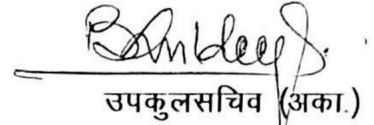 उपकुलसचिव (अका.)